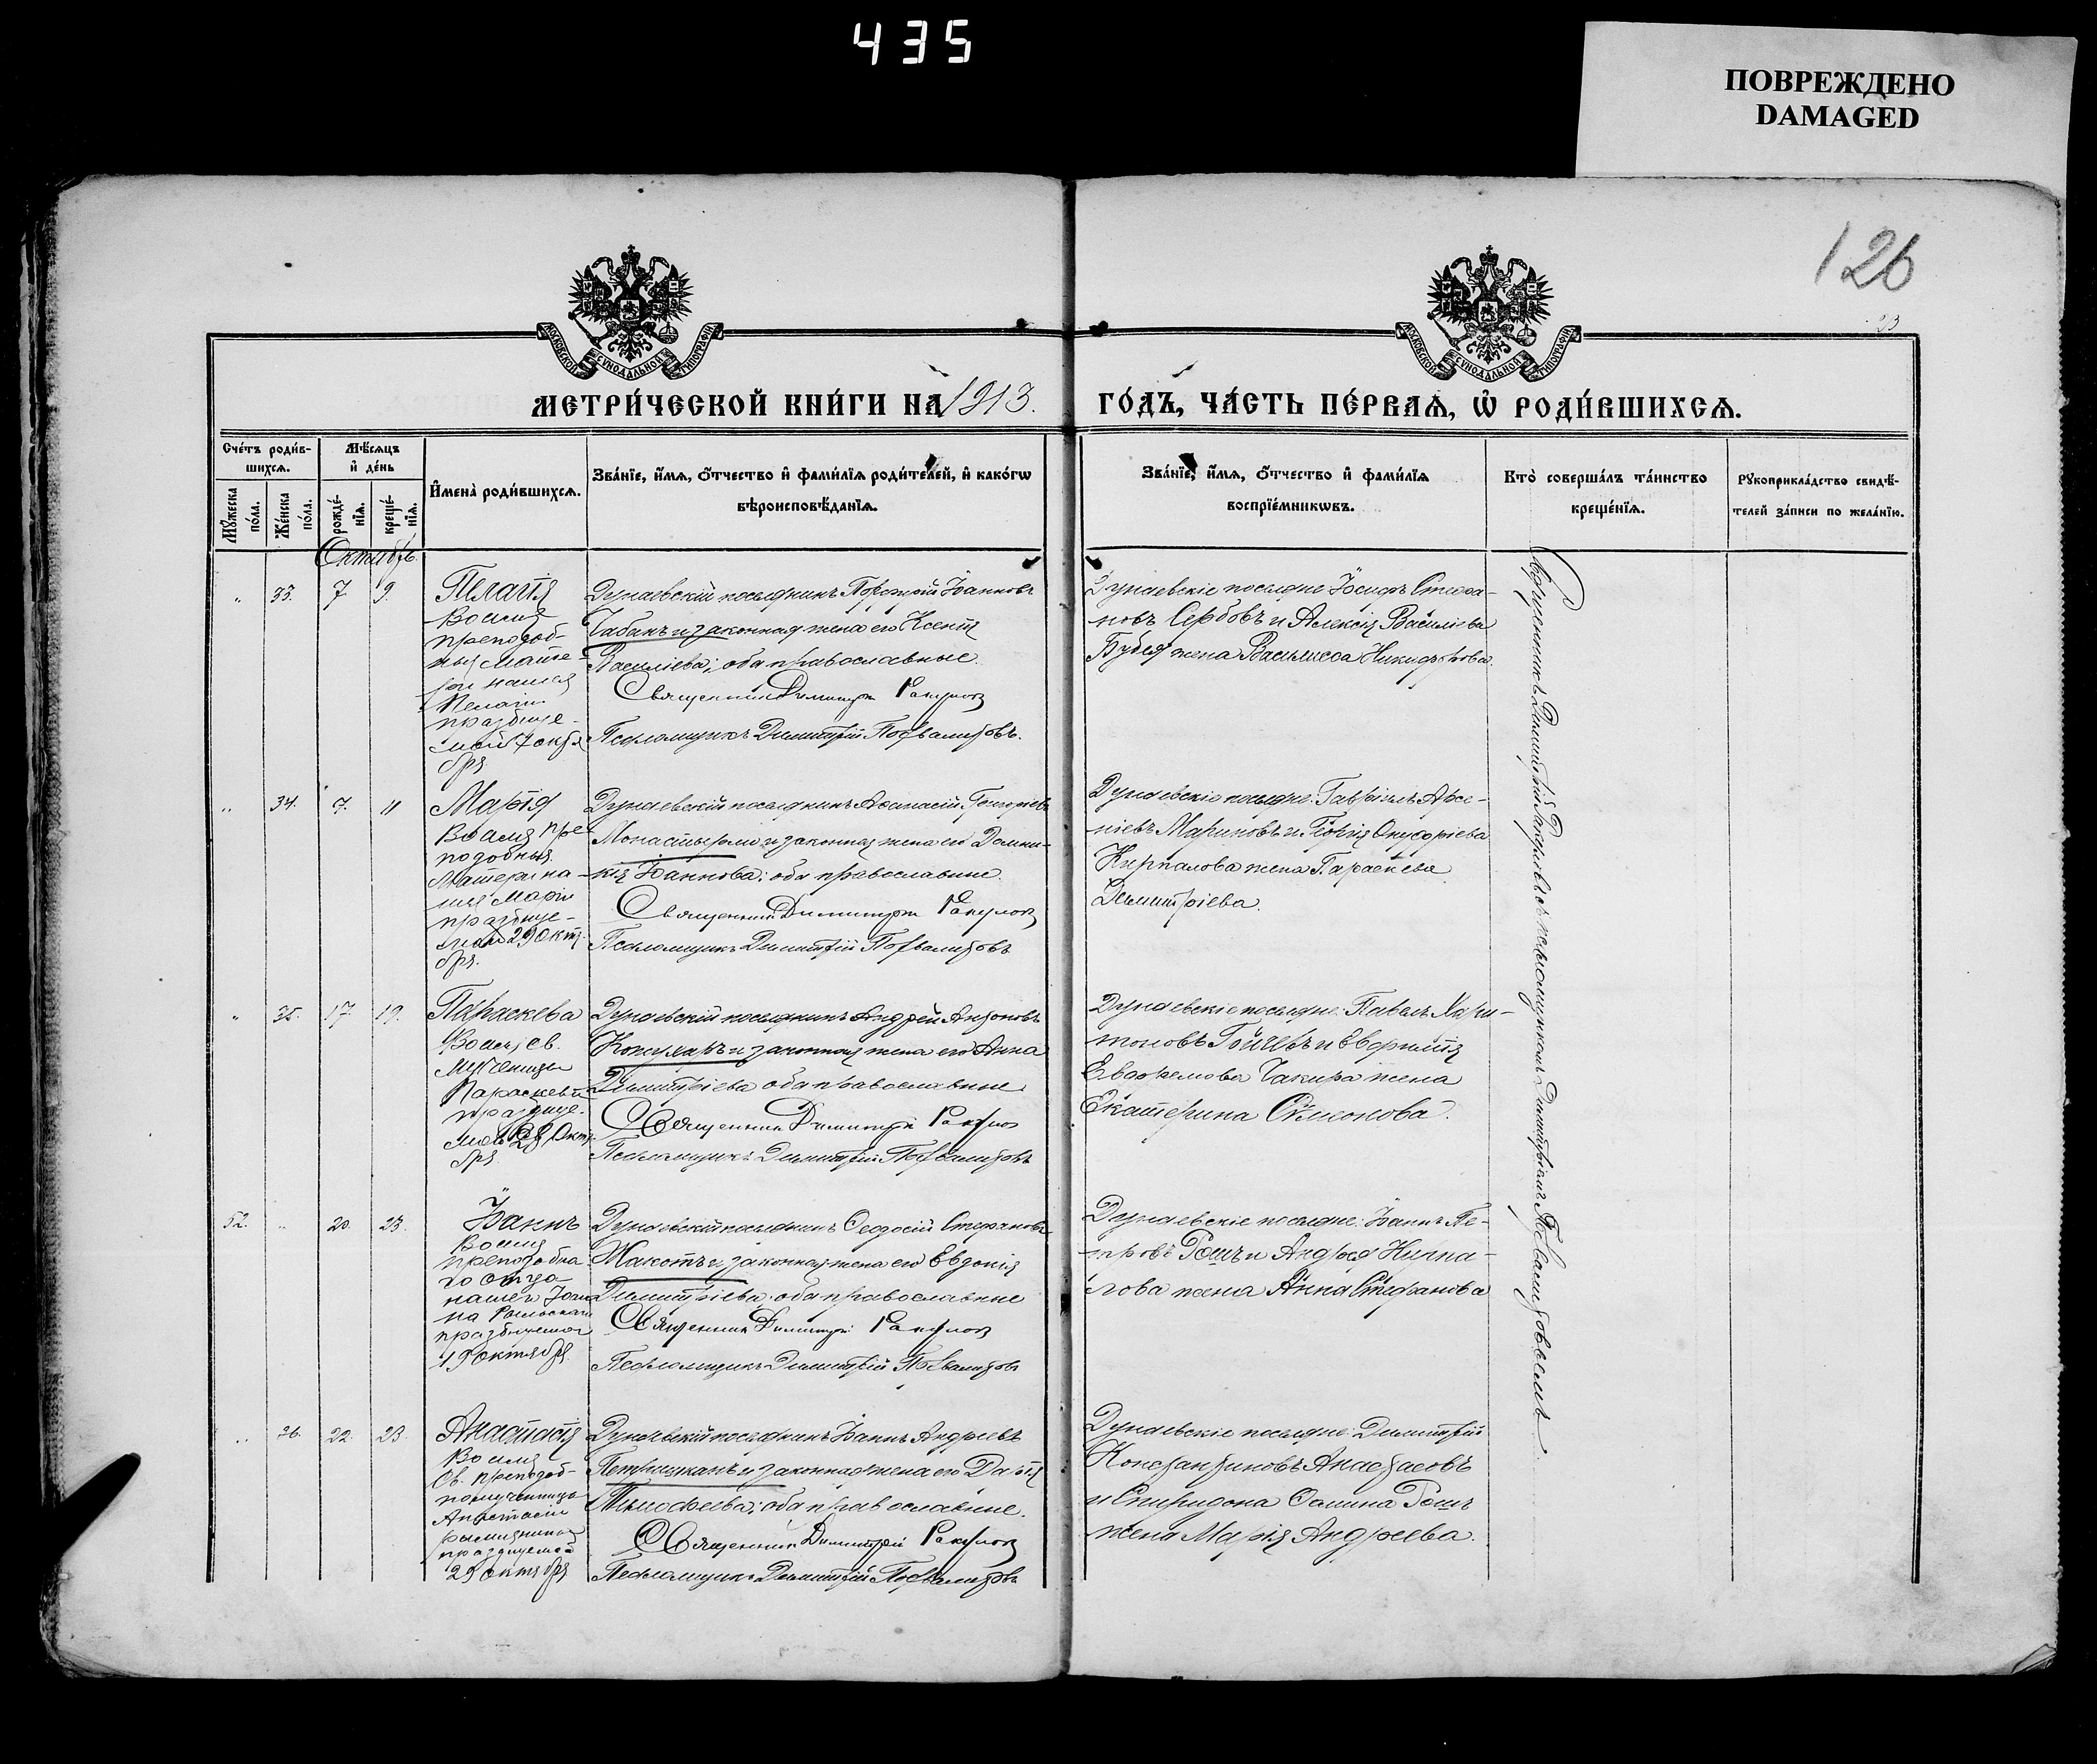 435
ПОВРЕЖДЕНО
DAMAGED
126
23
МОСКОВСКОЙ СѴНОДАЛЬНОЙ ТИПОГРАФІИ
МОСКОВСКОЙ СѴНОДАЛЬНОЙ ТИПОГРАФІИ
МЕТРИ́ЧЕСКОЙ КНИ́ГИ НА 1913.
ГО́ДЪ, ЧА́СТЬ ПЕ́РВАѦ, Ѡ҆ РОДИ́ВШИХСѦ.
Сче́тъ роди́в-
шихсѧ.
Мѣ́сѧцъ
и҆ де́нь
Мꙋ́жеска
по́ла.
Же́нска
по́ла.
рожде́-
нїѧ.
креще́-
нїѧ.
И҆мена̀ роди́вшихсѧ.
Зва́нїе, и҆́мѧ, ѻ҆́тчество и҆ фами́лїѧ роди́телей, и҆ како́гѡ
вѣроисповѣ́данїѧ.
Зва́нїе, и҆́мѧ, ѻ҆́тчество и҆ фами́лїѧ
воспрїе́мникѡвъ.
Кто̀ соверша́лъ та́инство
креще́нїѧ.
Рꙋкоприкла́дство свидѣ́-
телей за́писи по жела́нїю.
Октябрь.
" 33. 7 9.
Пелагія
Во имя
преподоб-
ныя Мате-
ри нашея
Пелагіи
празднуе-
мой 7 октя
бря.
Дунаевскій поселянинъ Порфирій Іоанновъ
Чабанъ и законная жена его Ксенія
Василіева; оба православные.
Священникъ Димитрій
Псаломщикъ Димитрій
Дунаевскіе поселяне: Іосифъ Стефа-
новъ Сербовъ и Алексія Василіева
жена Василиса Никифорова.
Священникъ Димитрій съ псаломщикомъ Димитріемъ
" 34. 7. 11
Марія
Во имя пре
подобныя
Матери на-
шея Маріи
празднуе-
мой 29 октя
бря.
Дунаевскій поселянинъ Афанасій Григоріевъ
и законная жена его Домни-
кія Іоаннова; оба православные.
Священникъ Димитрій
Псаломщикъ Димитрій
Дунаевскіе поселяне: Гавріилъ Арсе-
ніевъ Мариновъ и Георгія Онуфріева
жена Параскева
Димитріева.
" 35. 17 19.
Параскева
Во имя св.
мученицы
Параскевы
празднуе-
мой 28 Октя
бря
Дунаевскій поселянинъ Андрей Антоновъ
и законная жена его Анна
Димитріева оба православные.
Священникъ Димитрій
Псаломщикъ Димитрій
Дунаевскіе поселяне: Павелъ Хари-
тоновъ и Евфимія
Евфимова Чакира жена
Екатерина Симонова.
52. " 20 23.
Іоаннъ
Во имя
преподобна
го отца
нашего Іоан
на Рыльскаго
празднуемаго
19 октября
Дунаевскій поселянинъ Феодосій Стефановъ
и законная жена его Евдокія
Димитріева оба православные
Священникъ Димитрій
Псаломщикъ Димитрій
Дунаевскіе поселяне: Іоаннъ Пе-
тровъ Рошъ и Андрея Кирпа-
лова жена Анна Стефанова
" 36. 22. 23.
Анастасія
Во имя
Св. преподоб-
номученицы
Анастасіи
римляныни
празднуемой
29 октября
Дунаевскій поселянинъ Іоаннъ Андреевъ
и законная жена его Дарія
Тимофеева; оба православные.
Священникъ Димитрій
Псаломщикъ Димитрій
Дунаевскіе поселяне: Димитрій
Константиновъ Анастасовъ
и Спиридона Фомина Рошъ
жена Марія Андреева.